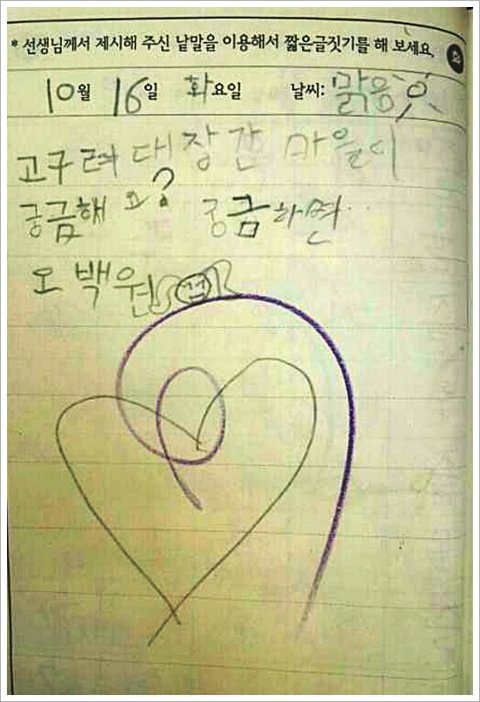 * 선생님께서 제시해 주신 낱말을 이용해서 짧은글짓기를 해 보세요.
10월 16일 화요일 날씨: 맑음
고구려 대장간 마을이
궁금해요? 궁금하면..
오백원